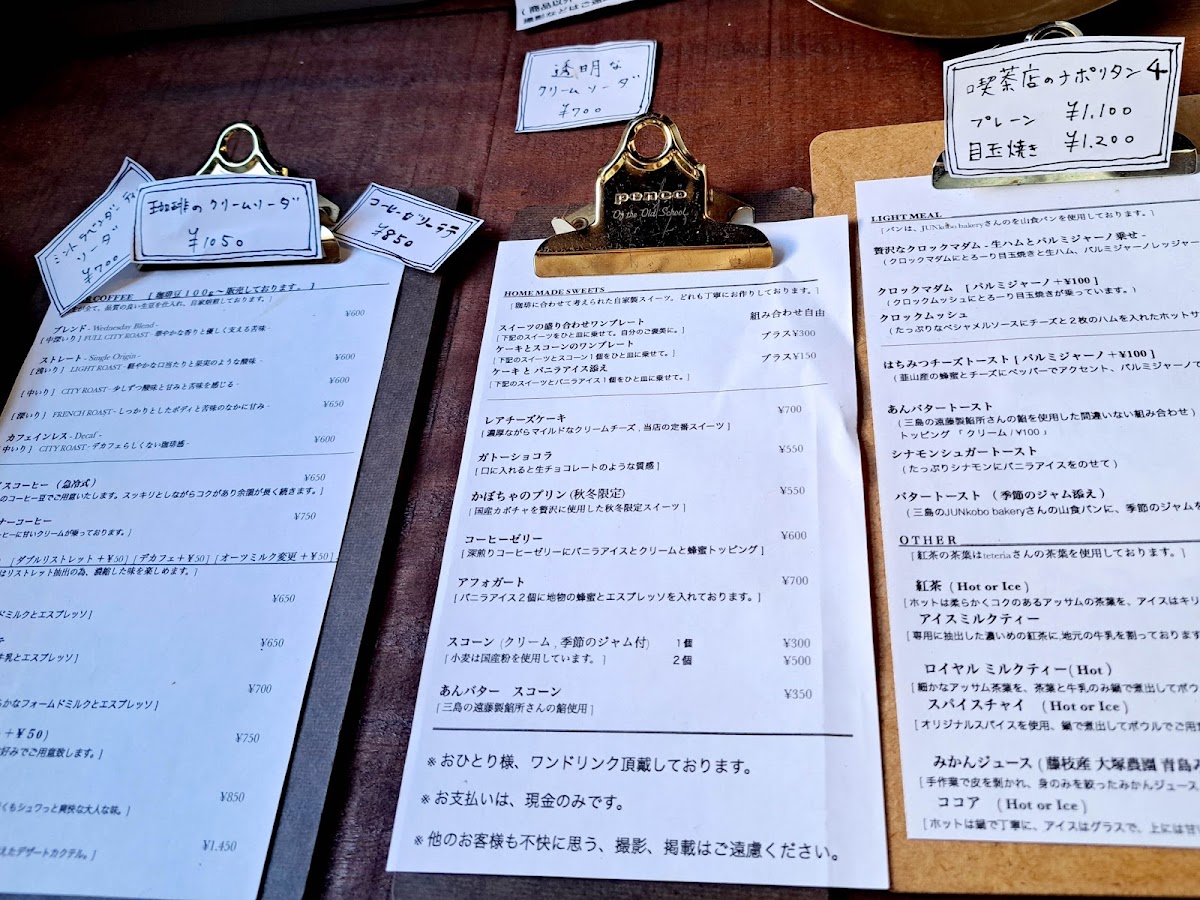 透明な
クリームソーダ
¥700
喫茶店のナポリタン
プレーン ¥1.100
目玉焼き ¥1.200
ソーダ
¥700
珈琲のクリームソーダ
¥1050
¥850
COFFEE [ 珈琲豆100g〜販売しております。 ]
品質の良い生豆を仕入れ、自家焙煎しております。 ]
¥600
ブレンド - Wednesday Blend -
[ 中深いり ] FULL CITY ROAST - 華やかな香りと優しく支える苦味 -
ストレート - Single Origin - ¥600
[ 浅いり ] LIGHT ROAST - 軽やかな口当たりと果実のような酸味 -
¥600
[ 中いり ] CITY ROAST - 少しずつ酸味と甘みと苦味を感じる -
¥650
[ 深いり ] FRENCH ROAST - しっかりとしたボディと苦味のなかに甘み -
カフェインレス - Decaf - ¥600
中いり ] CITY ROAST - デカフェらしくない珈琲感 -
イスコーヒー ( 急冷式 ) ¥650
のコーヒー豆でご用意いたします。スッキリとしながらコクがあり余韻が長く続きます。 ]
ナーコーヒー ¥750
ーヒーに甘いクリームが乗っております。 ]
[ ダブルリストレット +¥50 ] [ デカフェ +¥50 ] [ オーツミルク変更 +¥50 ]
はリストレット抽出の為、濃縮した味を楽しめます。 ]
¥650
ドミルクとエスプレッソ ]
¥650
牛乳とエスプレッソ ]
¥700
らかなフォームドミルクとエスプレッソ ]
+ ¥50 ) ¥750
好みでご用意致します。 ]
¥850
くもシュワっと爽快な大人な味。 ]
¥1,450
えたデザートカクテル。 ]
penco
Of the Old School
HOME MADE SWEETS
[ 珈琲に合わせて考えられた自家製スイーツ。どれも丁寧にお作りしております。 ]
スイーツの盛り合わせワンプレート 組み合わせ自由
[ 下記のスイーツをひと皿に乗せて。自分のご褒美に。 ]
ケーキとスコーンのワンプレート プラス¥300
[ 下記のスイーツとスコーン1個をひと皿に乗せて。 ]
ケーキ と バニラアイス添え プラス¥150
[ 下記のスイーツとバニラアイス1個をひと皿に乗せて。 ]
レアチーズケーキ ¥700
[ 濃厚ながらマイルドなクリームチーズ , 当店の定番スイーツ ]
ガトーショコラ ¥550
[ 口に入れると生チョコレートのような質感 ]
かぼちゃのプリン (秋冬限定) ¥550
[ 国産カボチャを贅沢に使用した秋冬限定スイーツ ]
コーヒーゼリー ¥600
[ 深煎りコーヒーゼリーにバニラアイスとクリームと蜂蜜トッピング ]
アフォガート ¥700
[ バニラアイス2個に地物の蜂蜜とエスプレッソを入れております。 ]
スコーン (クリーム , 季節のジャム付) 1個 ¥300
[ 小麦は国産粉を使用しています。 ] 2個 ¥500
あんバター スコーン ¥350
[ 三島の遠藤製餡所さんの餡使用 ]
※ おひとり様、ワンドリンク頂戴しております。
※ お支払いは、現金のみです。
※ 他のお客様も不快に思う、撮影、掲載はご遠慮ください。
LIGHT MEAL
[ パンは、JUNkobo bakeryさんのを山食パンを使用しております。 ]
贅沢なクロックマダム - 生ハムとパルミジャーノ乗せ -
( クロックマダムにとろーり目玉焼きと生ハム、パルミジャーノレッジャー
クロックマダム [ パルミジャーノ +¥100 ]
( クロックムッシュにとろーり目玉焼きが乗っています。 )
クロックムッシュ
( たっぷりなベシャメルソースにチーズと2枚のハムを入れたホットサ
はちみつチーズトースト [ パルミジャーノ +¥100 ]
( 韮山産の蜂蜜とチーズにペッパーでアクセント、パルミジャーノで
あんバタートースト
( 三島の遠藤製餡所さんの餡を使用した間違いない組み合わせ )
トッピング 「 クリーム / ¥100 」
シナモンシュガートースト
( たっぷりシナモンにバニラアイスをのせて )
バタートースト ( 季節のジャム添え )
( 三島のJUNkobo bakeryさんの山食パンに、季節のジャムを
OTHER
[ 紅茶の茶葉はteteriaさんの茶葉を使用しております。 ]
紅茶 ( Hot or Ice )
[ ホットは柔らかくコクのあるアッサムの茶葉を、アイスはキリ
アイスミルクティー
[ 専用に抽出した濃いめの紅茶に,地元の牛乳を割っております
ロイヤル ミルクティー( Hot )
[ 細かなアッサム茶葉を、茶葉と牛乳のみ鍋で煮出してボウ
スパイスチャイ ( Hot or Ice )
[ オリジナルスパイスを使用、鍋で煮出してボウルでご用
みかんジュース ( 藤枝産 大塚農園 青島み
[ 手作業で皮を剥かれ、身のみを絞ったみかんジュース
ココア ( Hot or Ice )
[ ホットは鍋で丁寧に、アイスはグラスで、上には甘